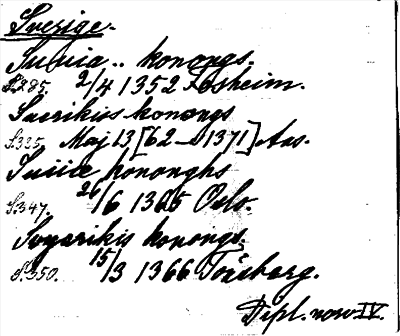 Sverige.
Suuia .. konongs.
S.285. 2/4 1352 Losheim.
Suerikis konongs
S.335. Maj 13[62–1371] Aas.
Suiia kononghs
S.347. 26/6 1365 Oslo.
Svyarikis konongs.
S.350. 15/3 1366 Tönsberg.
Dipl. norv. IV.